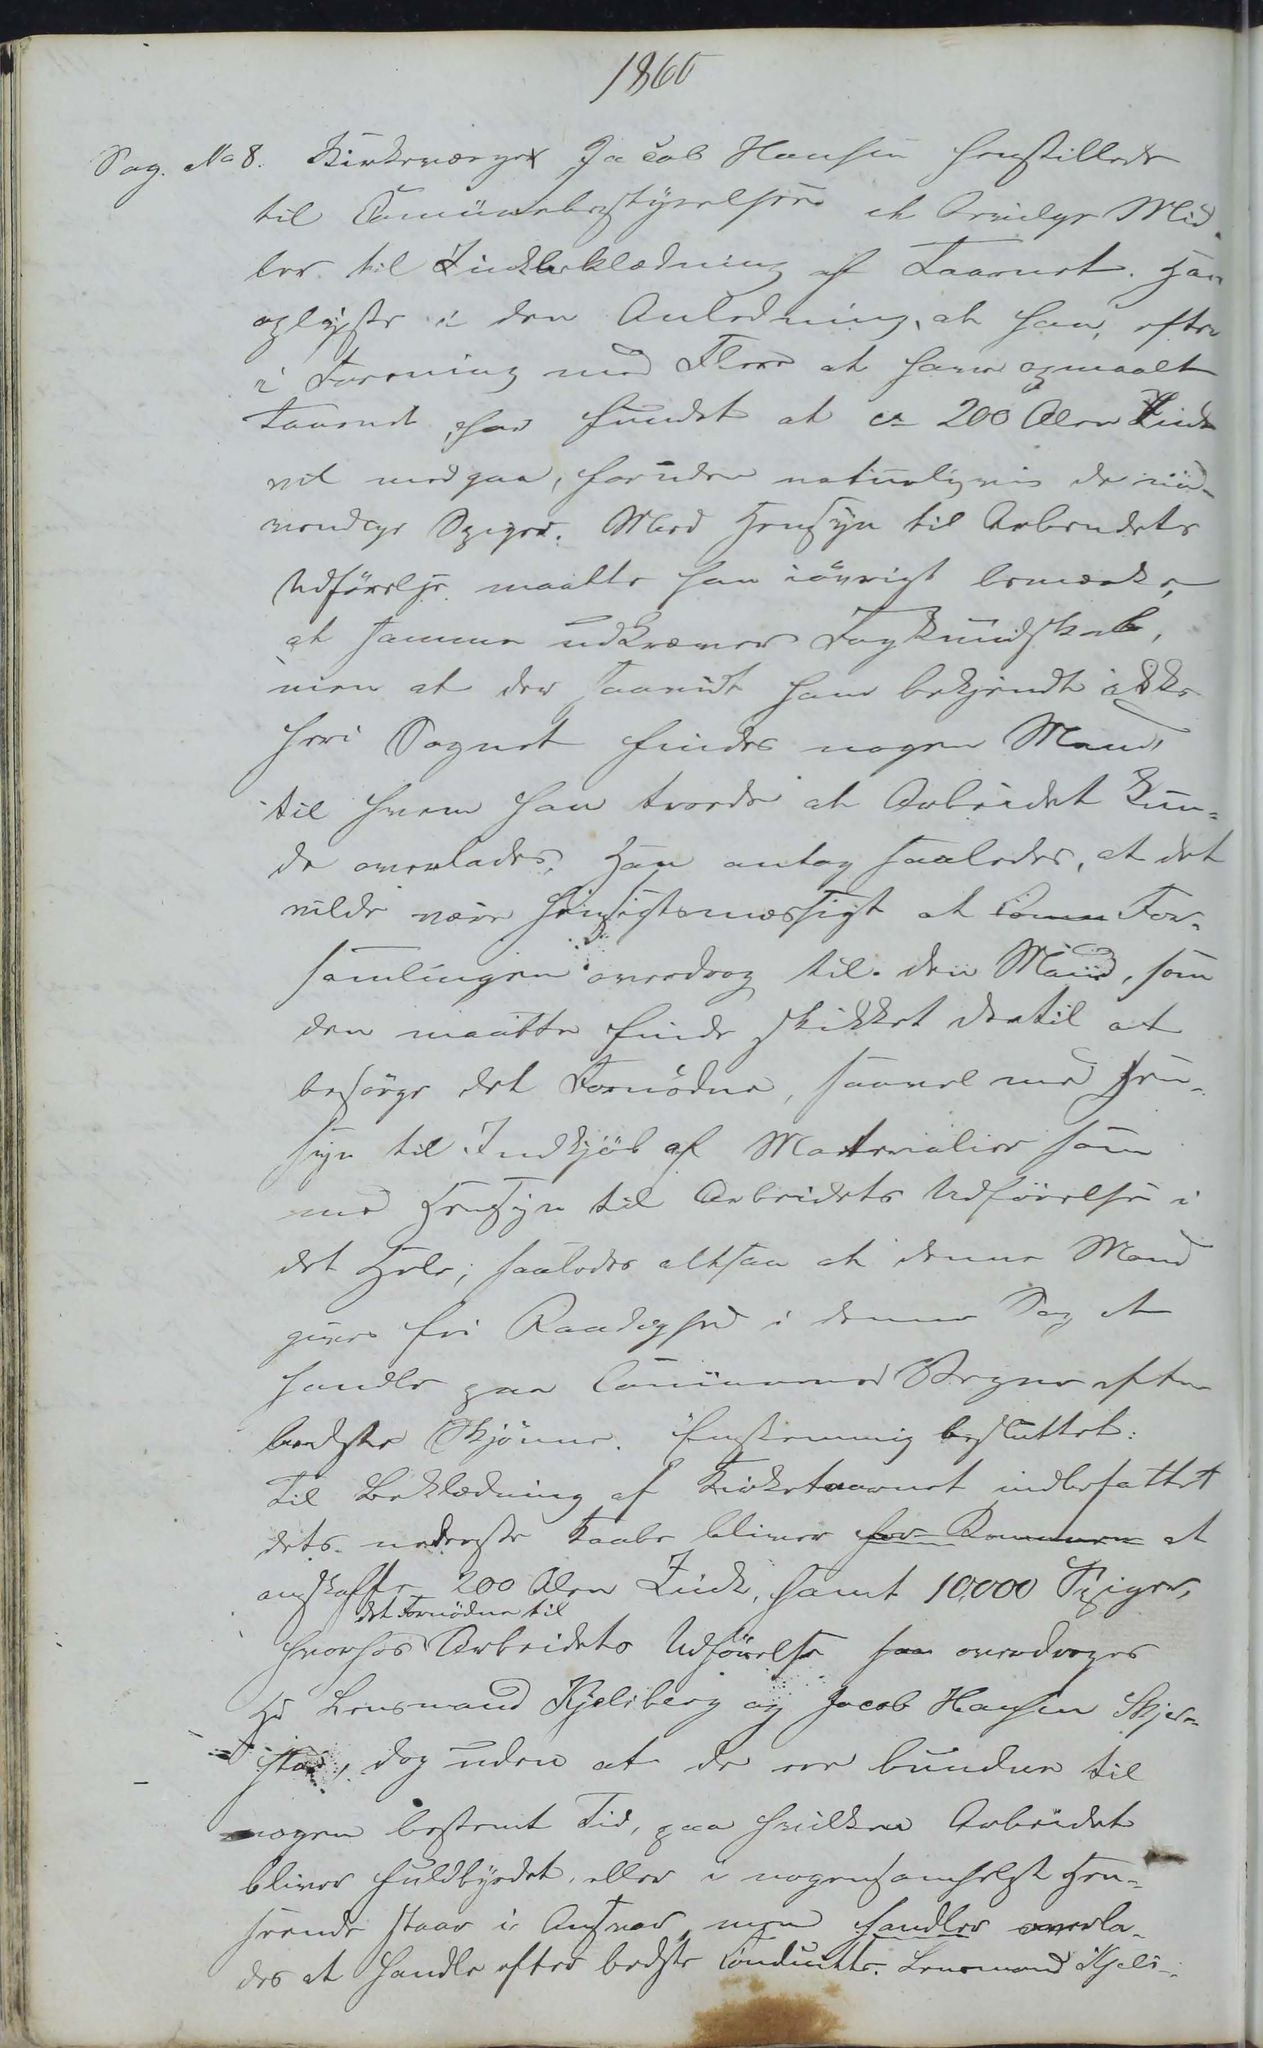 1866
Sag. No 8. Kirkeværge Jacob Hansen henstillede
til Comunebestyrelsen at bevilge Mid-
ler til Zinkbeklædning af Taarnet. Han
oplyste i den Anledning, at han, efter
i Forening med Flere at have opmaalt
Taarnet, har fundet at ca 200 Alen Zink
vil medgaa, foruden naturligvis de nød-
vendige Spiger. Med Hensyn til Arbeidets
Udførelse maatte han iøvrigt bemærke,
at samme udkræver Fagkundskab,
men at der saavidt ham bekjendt ikke
heri Sognet findes nogen Mand,
til hvem han troede at Arbeidet kun-
de overlades. Han antog saaledes, at det
vilde være hensigtsmæssigt at Comm For-
samlingen overdrog til den Mand, som
den maatte finde skikket dertil at
besørge det Fornødne, saavel med Hen-
syn til Indkjøb af Materialier som
med Hensyn til Arbeidets Udførelse i
det Hele; saaledes altsaa at denne Mand
gives fri Raadighed i denne Sag at
handle paa Comunens Vegne efter
bedste Skjønne. Enstemmig besluttet:
Til Beklædning af Kirketaarnet indbefattet
dets nederste Kaabe bliver for Kommunen at
anskaffe 200 Alen Zink, samt 10,000 Spiger,
det Fornødne til
hvorhos Arbeidets Udførelse saa overdroges
Hr Lensmand Kjelsberg og Jacob Hansen Skjer-
stad, dog uden at de ere bunden til
nogen bestemt Tid, paa hvilken Arbeidet
bliver fuldbyrdet, eller i nogensomhelst Hen-
seende staar i Ansvar, men handler overla-
des at handle efter bedste Conduitte. Lensmand Kjels-